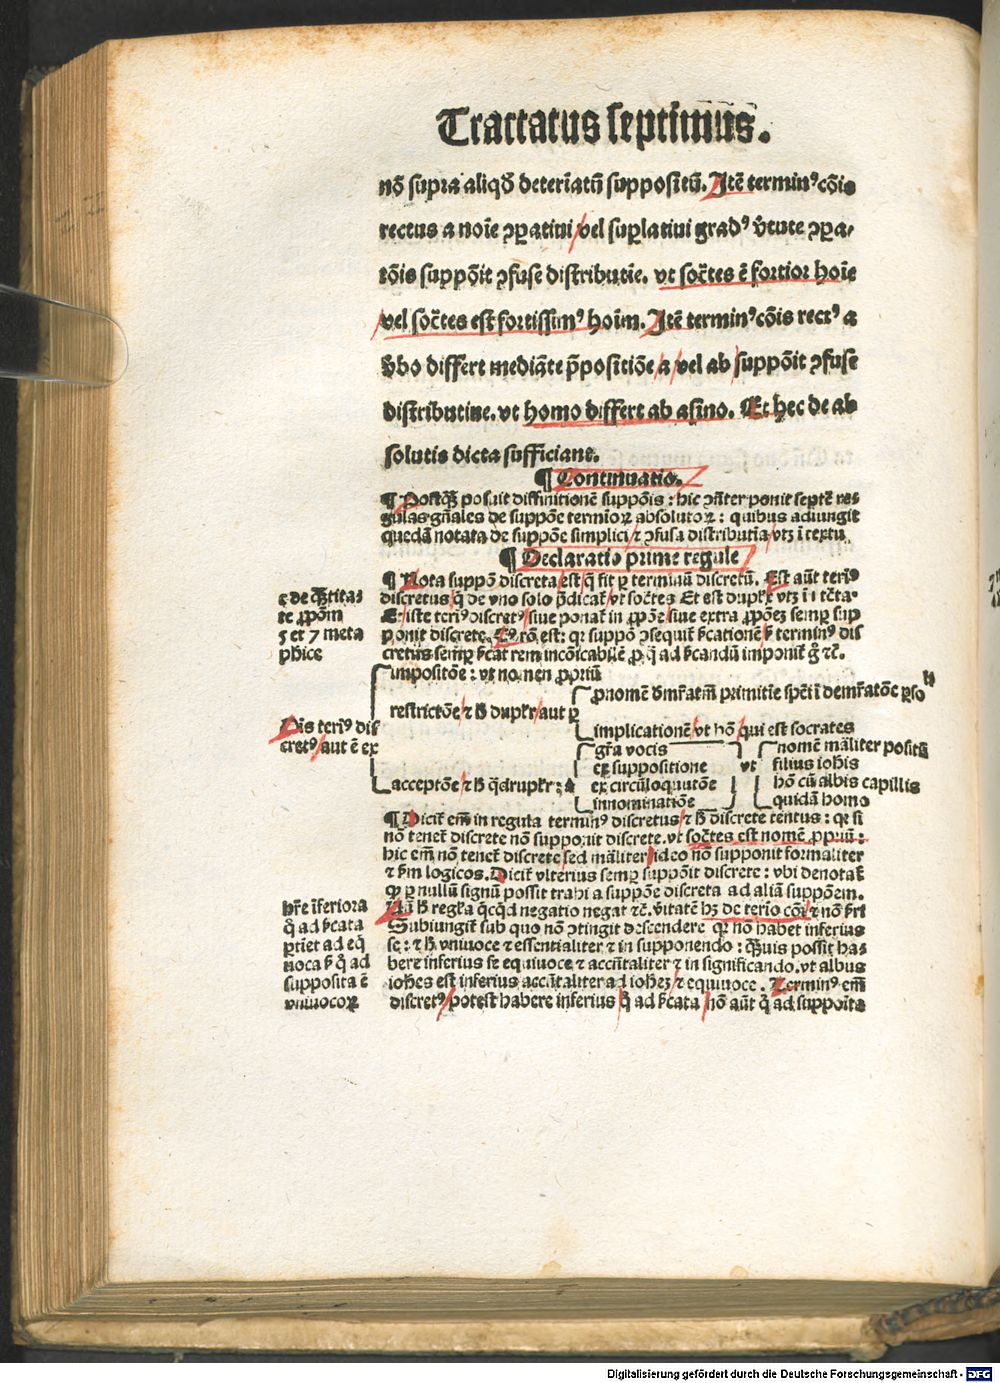 Tractatus septimus.
nō supra aliqḋ deteriatū suppositū. Itē terminꝰ cōis
rectus a noīe ꝯꝑatiui vel suꝑlatiui gradꝰ v̄tute ꝯꝑa-
tōis suppōit ꝯfuse distributie. vt soc̄tes ē fortior hoīe
vel soc̄tes est fortissimꝰ hoīm. Itē terminꝰ cōis rectꝰ a
v̄bo differt mediāte p̄positiōe a vel ab suppōit ꝯfuse
distributiue. vt homo differt ab asino. Et hec de ab
solutis dicta sufficiant.
¶ Continuatio.
¶ Postꝙ̄ posuit diffinitionē suppōis: hic ꝯn̄ter ponit septē re-
gulas gn̄ales de suppōe termīoꝝ absolutoꝝ: quibus adiungit
quedā notata de suppōe simplici ⁊ ꝯfusa distributīa vtꝫ ī textu
¶ Declaratio prime regule
¶ Nota suppō discreta est q̄ fit ꝑ terminū discretū. Est aūt teriꝰ
discretus q̇ de vno solo p̄dicat̄ vt soc̄tes Et est dupl̄r vtꝫ ī tc̄ta.
Et iste teriꝰ discretꝰ siue ponat̄ in ꝓpōe siue extra ꝓpōeꝫ semꝑ sup
ponit discrete. Cꝰ rō est: qꝛ suppō ꝯsequit̄ s̄catione s̄ terminꝰ dis
cretus semꝑ s̄cat rem incōicabilē ꝓ q̇ ad s̄candū imponit̄ g̊ ⁊c̄.
⁊ de q̄titа-
te ꝓpōm
5 et 7 meta
phice
Ois teriꝰ dis
cretꝰ aut ē ex
impositōe: vt nomen ꝓpriū
restrictōe ⁊ h̄ dupl̄r aut ꝑ
ꝓnomē dm̄r̄atm̄ primitīe spēi ī demr̄atōe ꝑso
implicationē vt hō qui est socrates
acceptōe ⁊ h̄ q̄drupl̄r:
gr̄a vocis
ex suppositione
ex circūloquutōe
innominatiōe
vt
nomē māliter positū
filius iohis
hō cū albis capillis
quidā homo
¶ Dicit em̄ in regula terminꝰ discretus ⁊ h̄ discrete tentus: qꝛ si
nō tenet̄ discrete nō supponit discrete. vt soc̄tes est nomē ꝓpriū:
hic em̄ nō tenet̄ discrete sed māliter ideo nō supponit formaliter
⁊ s̄m logicos. Dicit vlterius semꝑ suppōit discrete: vbi denotat̄
ꝙ ꝑ nullū signū possit trahi a suppōe discreta ad aliā suppōem.
Nā h̄ regl̄a q̇cq̇d negatio negat ⁊c̄. v̄itatē hꝫ de terīo cōi ⁊ nō s̄ri
Subiungit̄ sub quo nō ꝯtingit descendere qꝛ nō habet inferius
se: ⁊ h̄ vniuoce ⁊ essentialiter ⁊ in supponendo: ꝙuis possit ha-
bere inferius se equiuoce ⁊ accn̄taliter ⁊ in significando. vt albus
iohēs est inferius accn̄taliter ad iohēꝫ ⁊ equiuoce. Terminꝰ em̄
discretꝰ potest habere inferius q̊ ad s̄cata nō aūt q̊ ad supposita
hr̄e īferiora
q̊ ad s̄cata
ꝑtiet ad eq̇
uoca s̄ q̊ ad
supposita ē
vniuocoꝝ
Digitalisierung gefördert durch die Deutsche Forschungsgemeinschaft - DFG